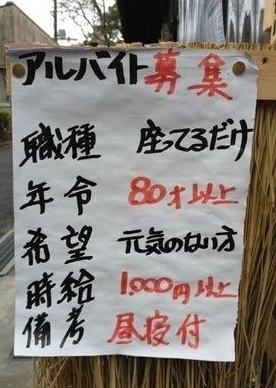 アルバイト募集
職種 座ってるだけ
年令 80才以上
希望 元気のない方
時給 1,000円以上
備考 昼寝付